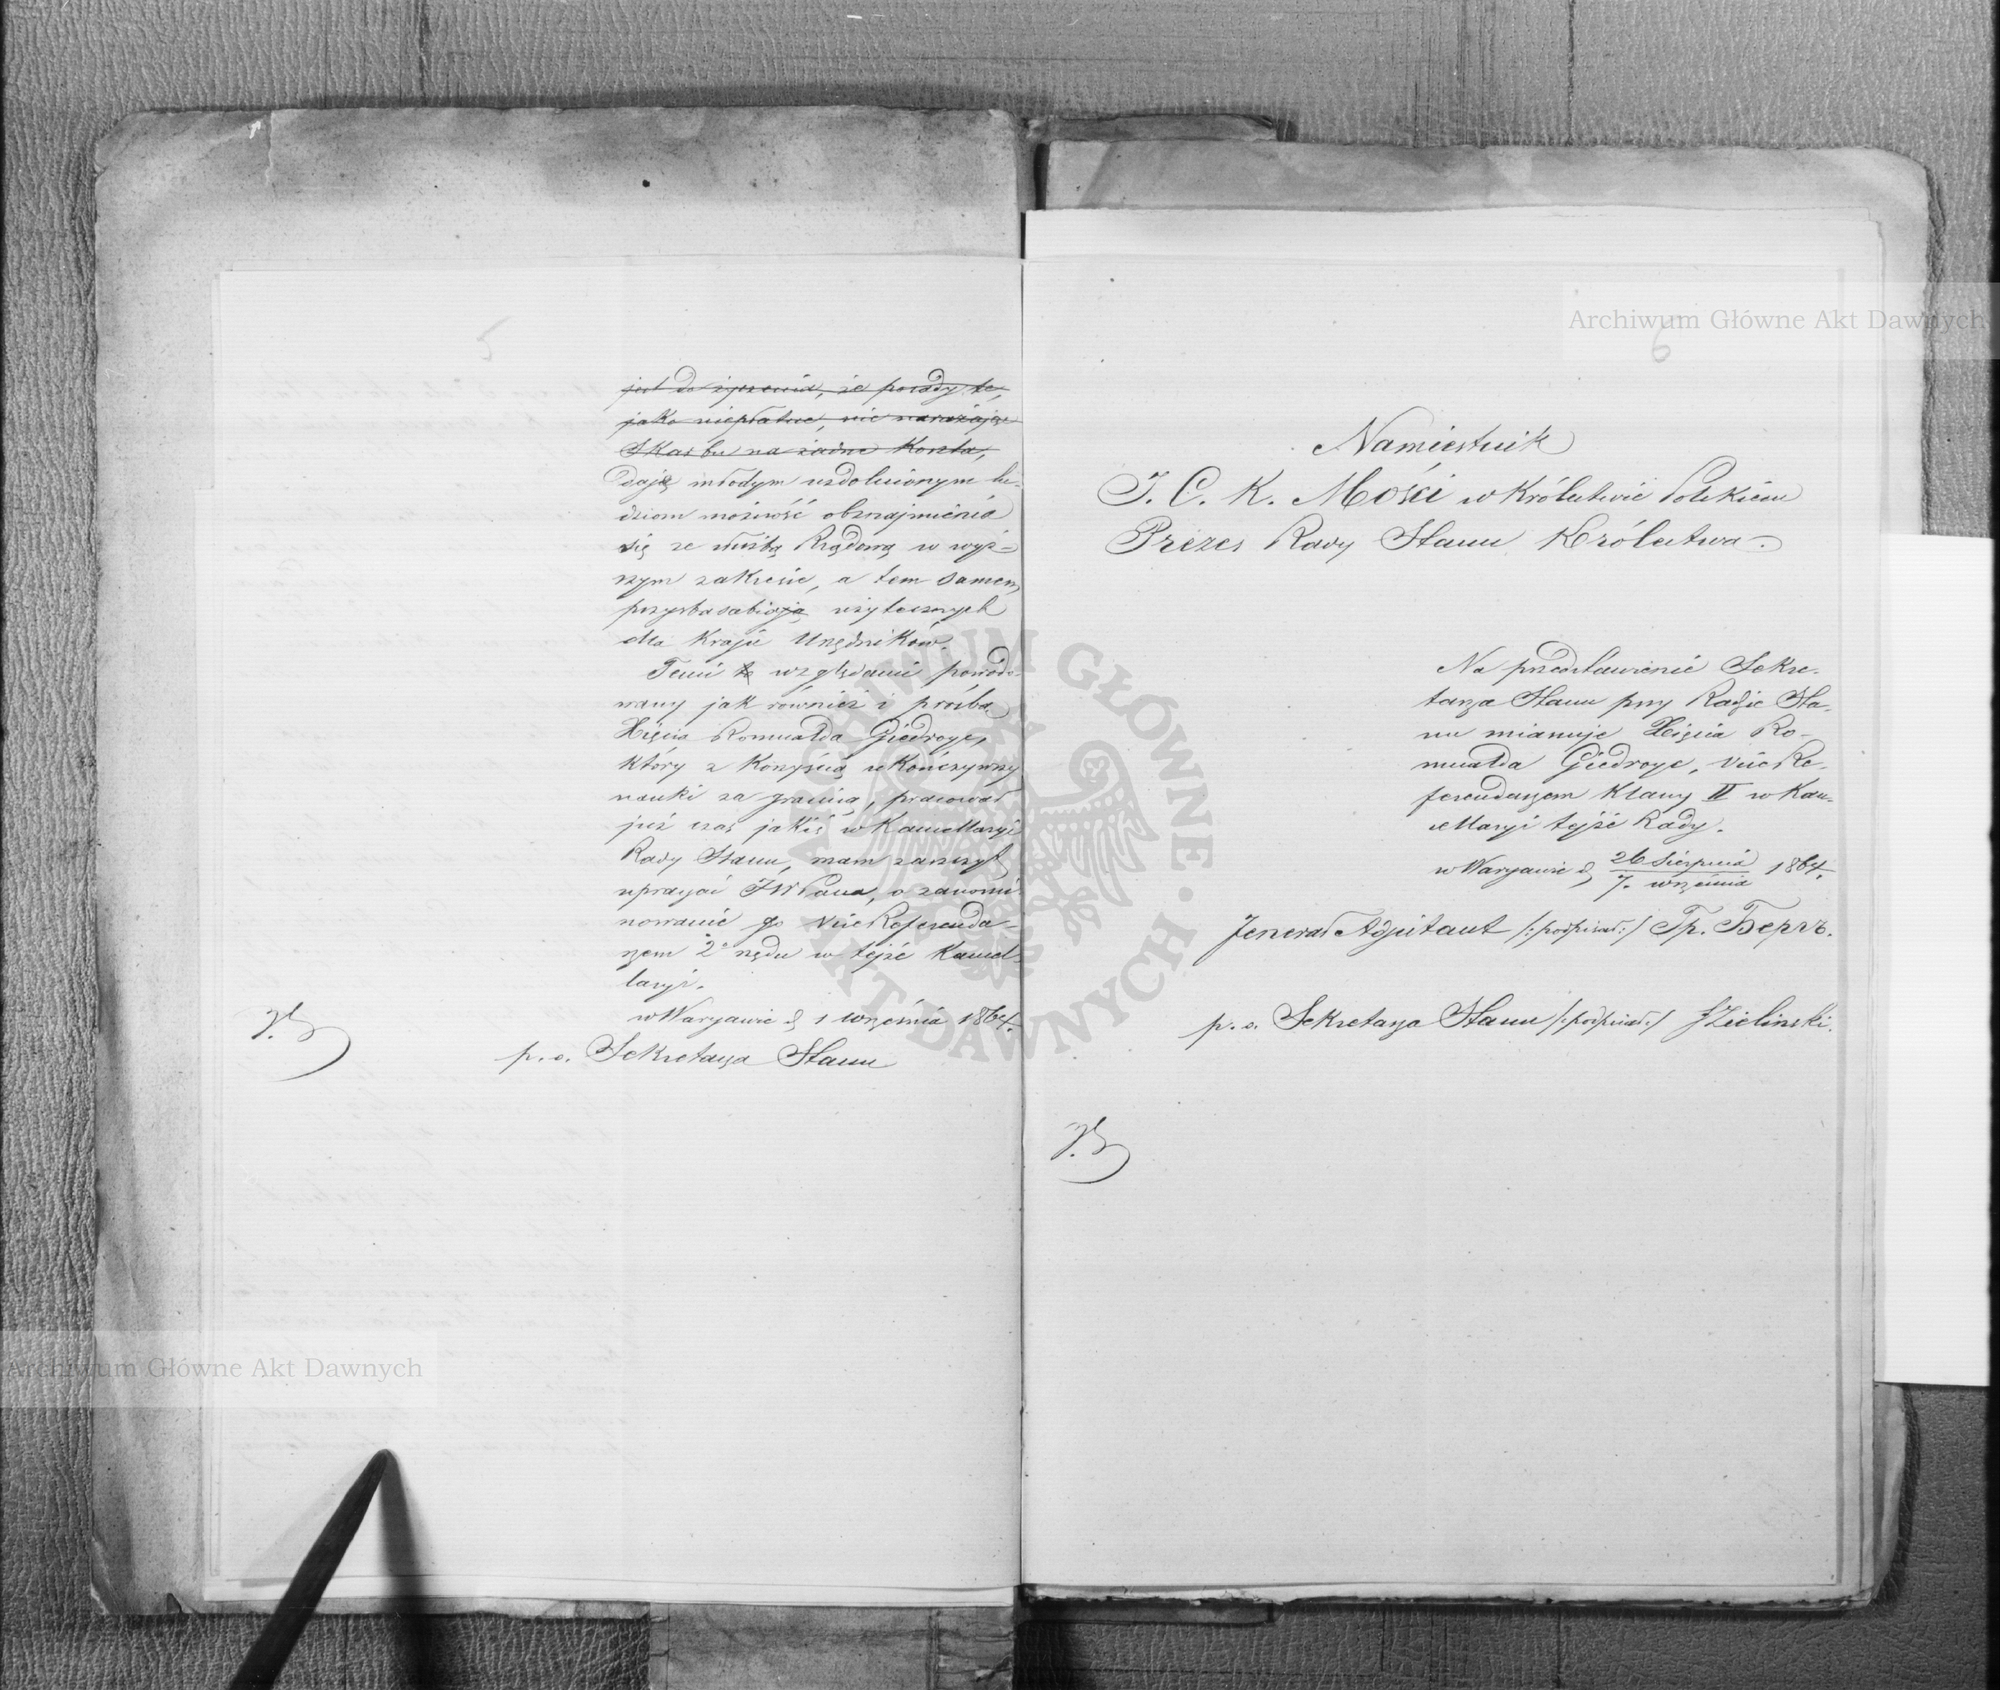 5
jest do życzenia, że posady te,
jako niepłatne, nie narażając
Skarbu na żadne Koszta,
dają młodym uzdolnionym lu-
dziom możność obznajmienia
się ze służbą Rządową w wyż-
szym zakresie, a tem samem
przysposabiają użytecznych
dla Kraju Urzędników.
Temi względami powodo-
wany jak również i prośbą
Xięcia Romualda Giedroyc,
który z Korzyścią ukończywszy
nauki za granicą, pracował
już czas jakiś w Kancellaryi
Rady Stanu, mam zaszczyt
upraszać JW Pana, o zanomi-
nowanie go ViceReferenda-
rzem 2o rzędu w tejże Kancel-
laryi.
w Warszawie d. 1 Września 1864.
p. o. Sekretarza Stanu
Archiwum Główne Akt Dawnych
6
Namiestnik
J. C. K. Mości w Królestwie Polskiem
Prezes Rady Stanu Królestwa.
Na przedstawienie Sekre-
tarza Stanu przy Radzie Sta-
nu mianuje Xięcia Ro-
mualda Giedroyc, Vice Re-
ferendarzem Klassy II w Kan-
cellaryi tejże Rady.
w Warszawie d. 26 Sierpnia / 7. września 1864.
Jenerał Adjutant /:podpisał:/ Гр. Бергъ.
p. o. Sekretarza Stanu /:podpisał:/ J Zielinski.
Archiwum Główne Akt Dawnych
ARCHIWUM GŁÓWNE AKT DAWNYCH